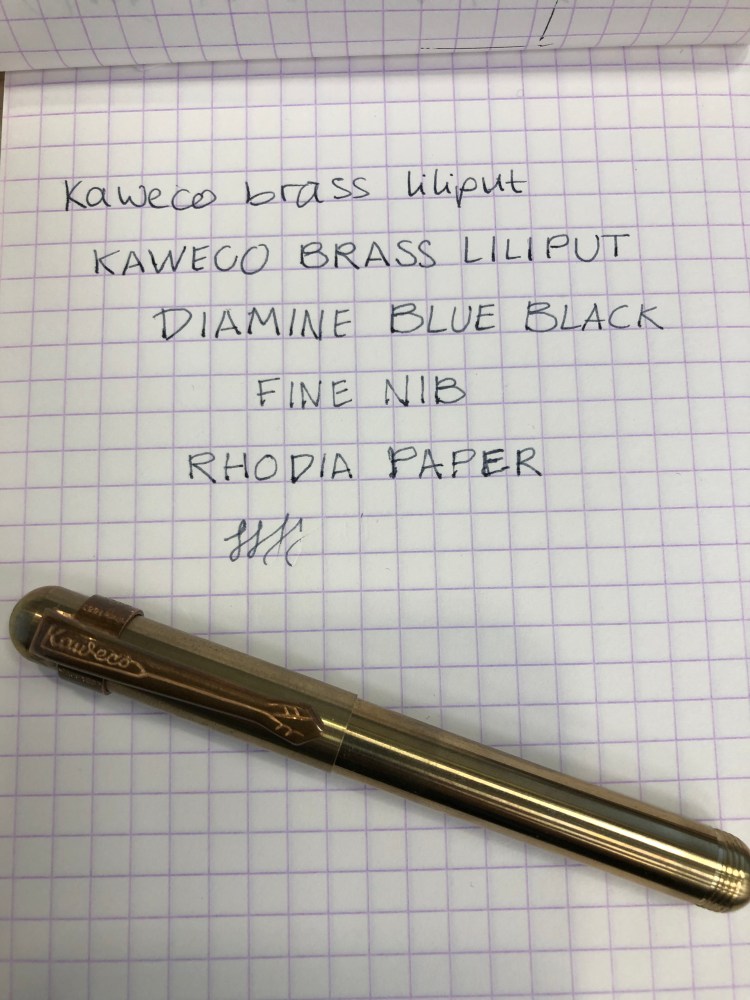 Kaweco brass liliput
KAWECO BRASS LILIPUT
DIAMINE BLUE BLACK
FINE NIB
RHODIA PAPER
Kaweco